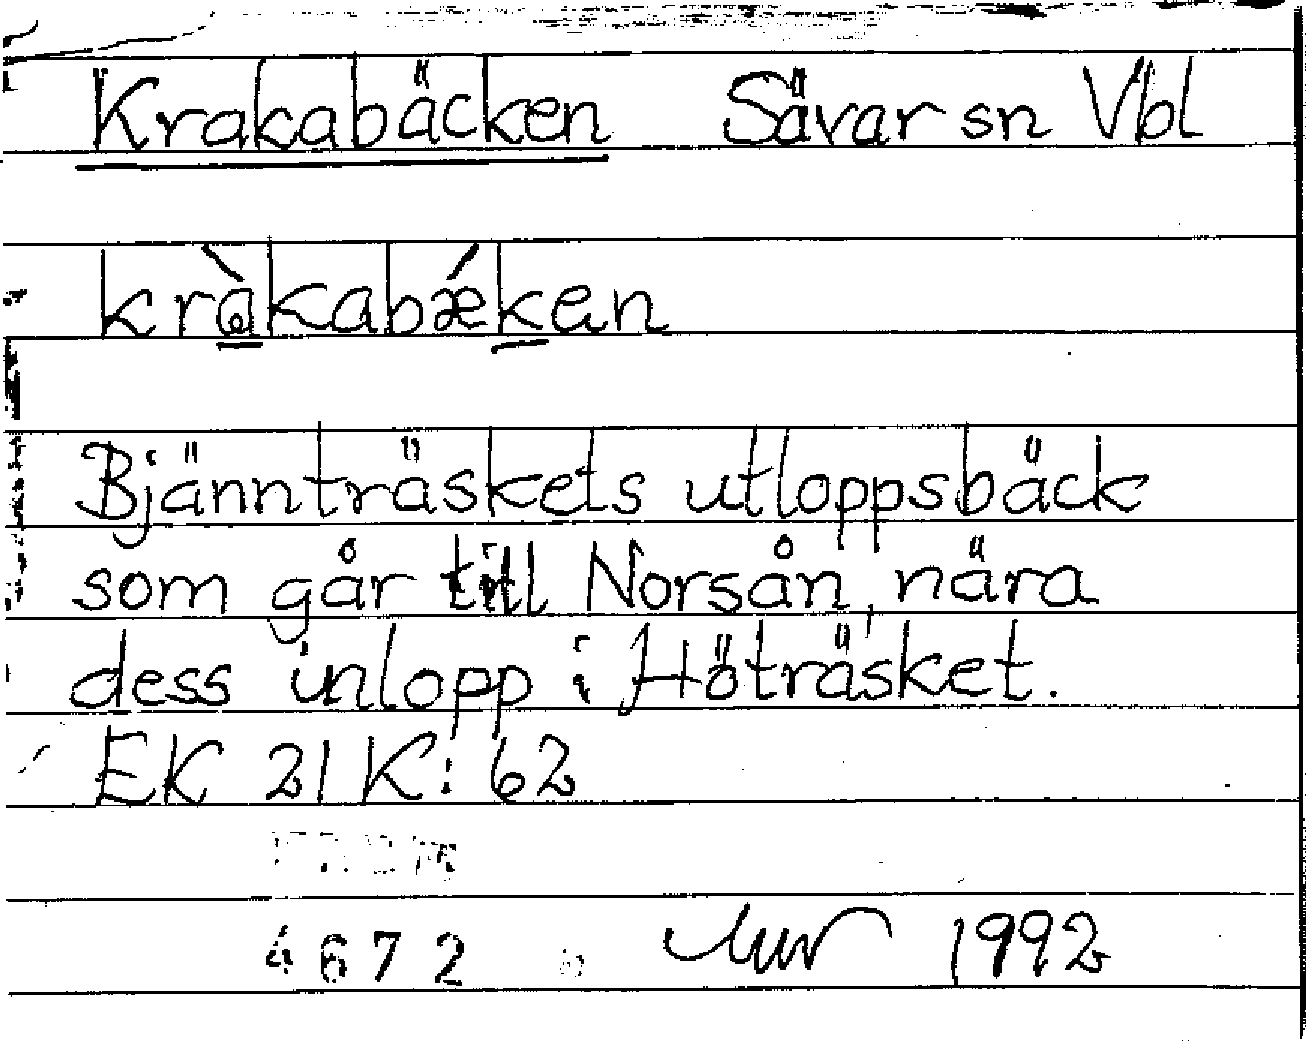 Krakabäcken Sävar sn Vbl
kràkabǽken
Bjännträskets utloppsbäck
som går till Norsån, nära
dess inlopp i Höträsket.
EK 21K:62
4672 1992